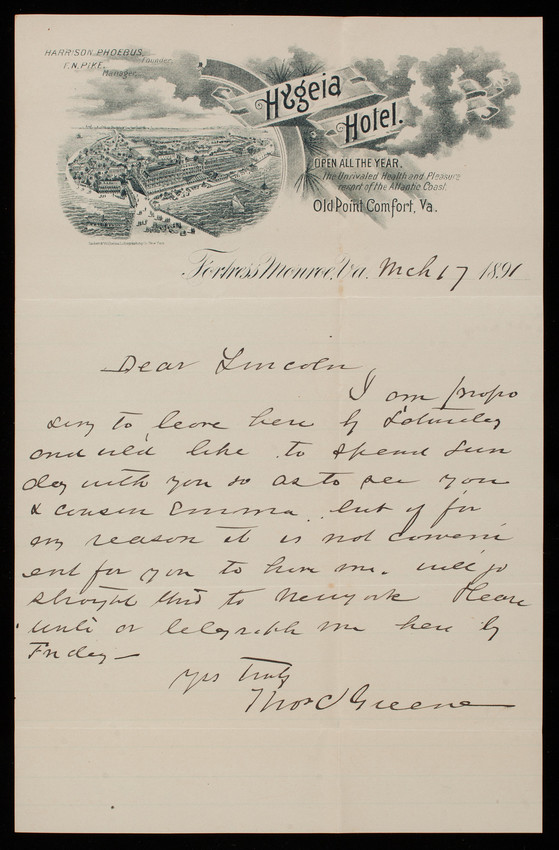 HARRISON PHOEBUS,
Founder.
F. N. PIKE,
Manager.
Hygeia
Hotel.
OPEN ALL THE YEAR.
The Unrivaled Health and Pleasure
resort of the Atlantic Coast.
Old Point Comfort, Va.
Fortress Monroe, Va. Mch 17 1891
Dear Lincoln
I am propo
sing to leave here by Saturday
and w'd like to spend Sun
day with you so as to see you
& cousin Emma. but if for
any reason it is not conveni
ent for you to have me. will go
straight thro to New york Please
write or telegraph me here by
Friday—
Yrs Truly
Thos L Greene